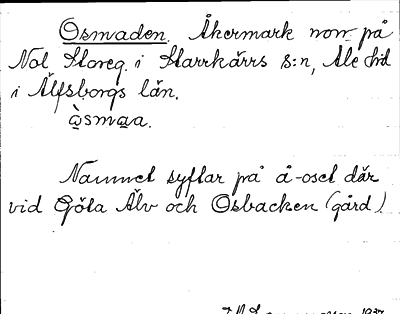 Osmaden. Åkermark norr på
Nol Storeg. i Starrkärrs s:n, Ale hd
i Älfsborgs län.
òsmaa.
Namnet syftar på å-oset där
vid Göta Älv och Osbacken (gård)
1937